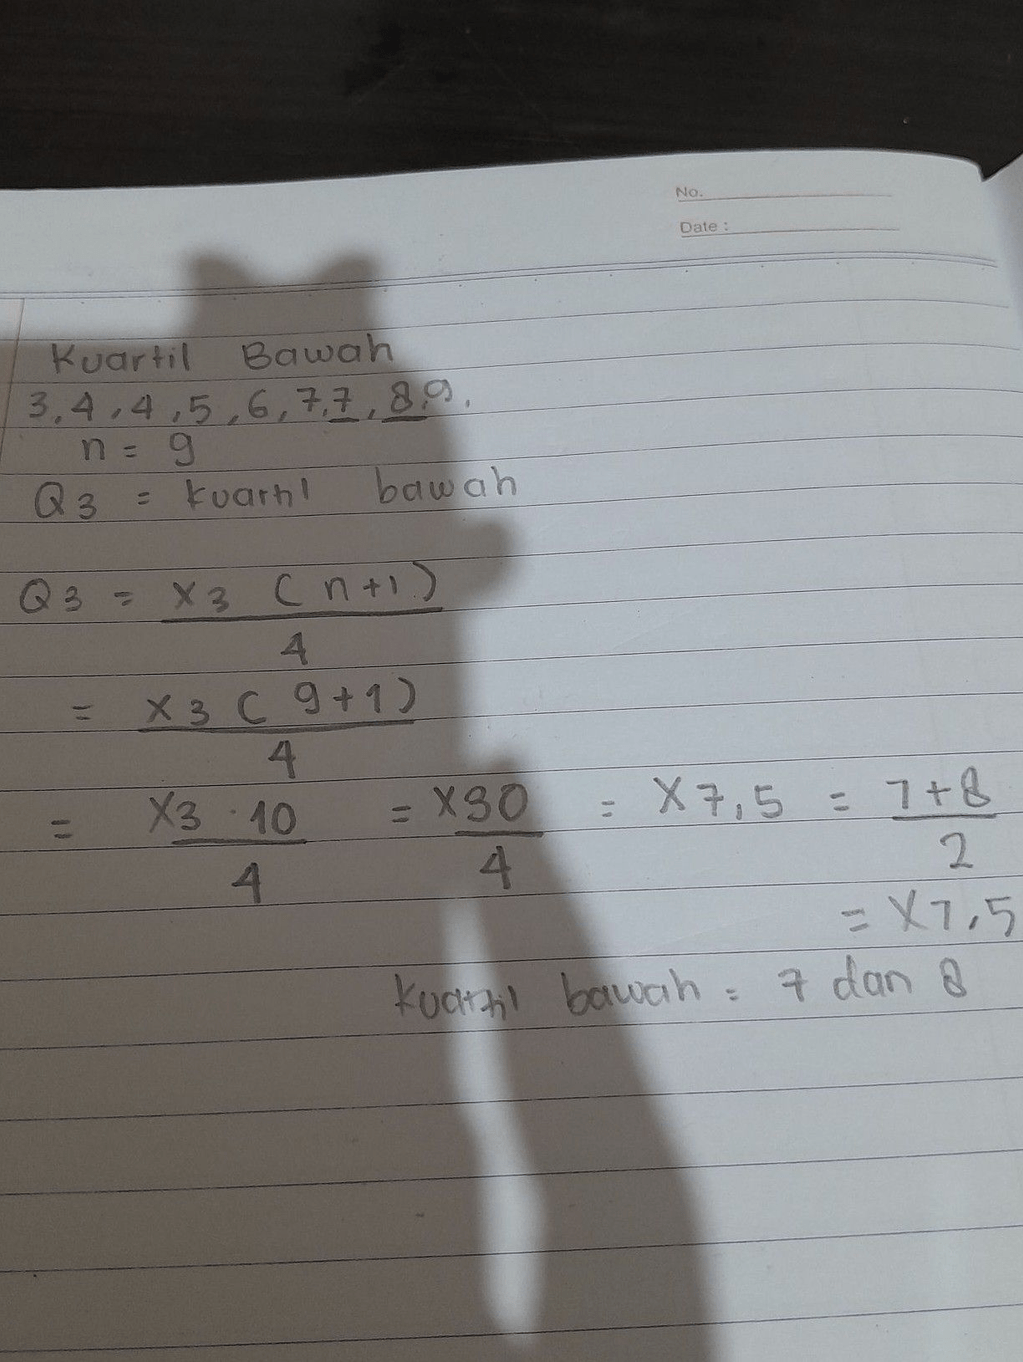 No.
Date :
Kuartil Bawah
3,4,4,5,6,7,7,8,9.
n = 9
Q3 = kuartil bawah
Q3 = X3 (n+1)
4
= X3 (9+1)
4
= X3 · 10 = X30 = X7,5 = 7+8
4 4 2
= X7,5
kuartil bawah = 7 dan 8